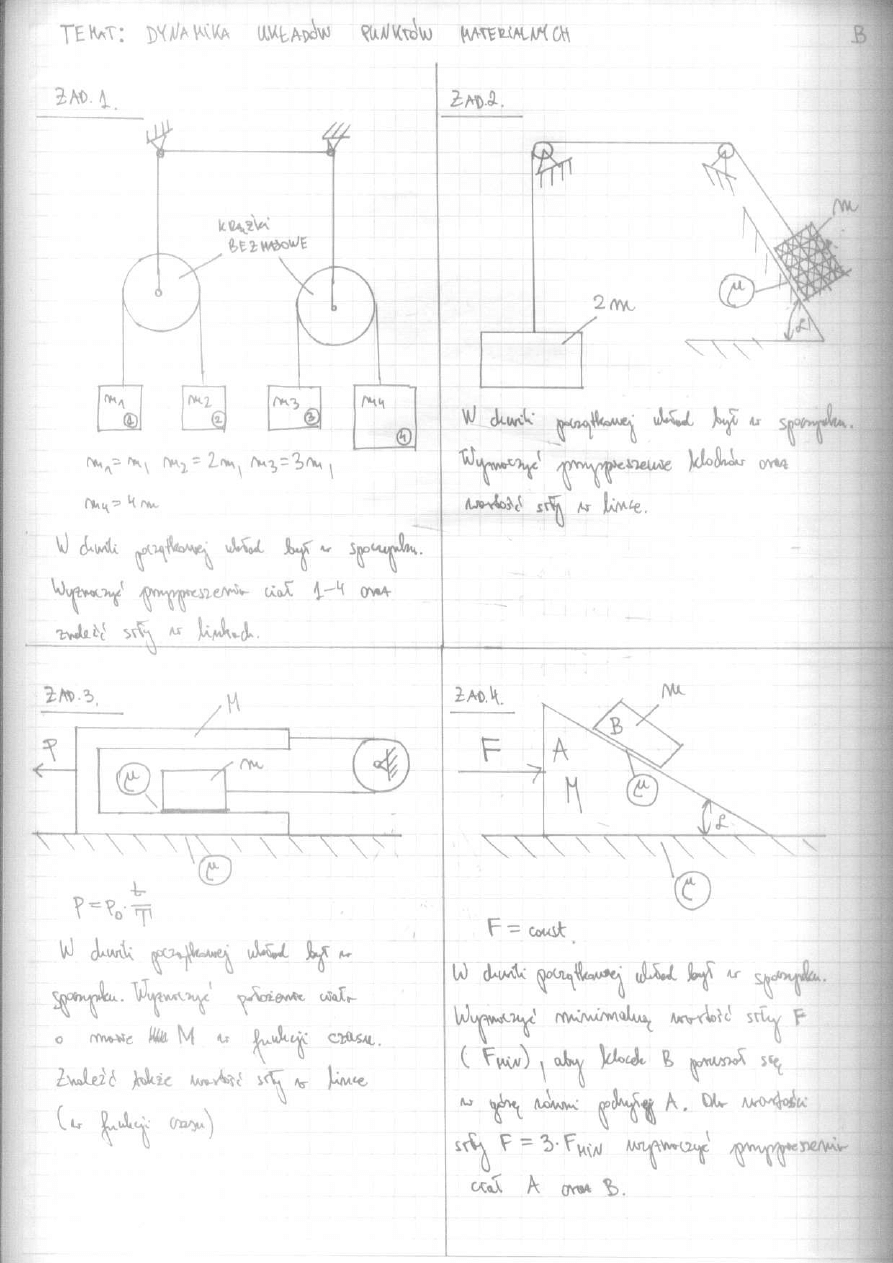 TEMAT: DYNAMIKA UKŁADÓW PUNKTÓW MATERIALNYCH B
ZAD. 1.
KRĄŻKI
BEZMASOWE
m1 1
m2 2
m3 3
m4 4
m1 = m, m2 = 2m, m3 = 3m,
m4 = 4m
W chwili początkowej układ był w spoczynku.
Wyznaczyć przyspieszenia ciał 1-4 oraz
znaleźć siły w linkach.
ZAD.2.
m
μ
α
2m
W chwili początkowej układ był w spoczynku.
Wyznaczyć przyspieszenie klocków oraz
wartość siły w lince.
ZAD.3.
M
P
μ
m
μ
P = P0 · t/T
W chwili początkowej układ był w
spoczynku. Wyznaczyć położenie ciała
o masie M w funkcji czasu.
Znaleźć także wartość siły w lince
(w funkcji czasu)
ZAD.4.
m
B
F
A
M
μ
α
μ
F = const.
W chwili początkowej układ był w spoczynku.
Wyznaczyć minimalną wartość siły F
(FMIN), aby klocek B poruszał się
w górę równi pochyłej A. Dla wartości
siły F = 3·FMIN wyznaczyć przyspieszenia
ciał A oraz B.